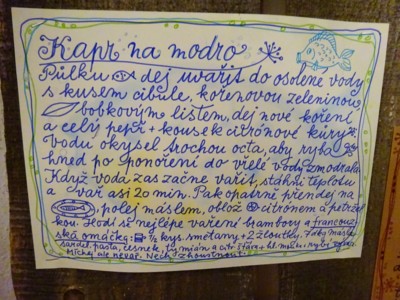 Kapr na modro
Půlku dej uvařit do osolené vody
s kusem cibule, kořenovou zeleninou,
bobkovým listem, dej nové koření
a celý pepř + kousek citrónové kůry.
Vodu okysel trochou octa, aby ryba
hned po ponoření do vřelé vody zmodrala.
Když voda zas začne vařit, stáhni teplotu
a vař asi 20 min. Pak opatrně přendej na
, polej máslem, oblož citrónem a petržel
kou. Hodí se nejlépe vařené brambory a francouz
ská omáčka: kys. smetany + 2 žloutky, máslo
sardel. pasta, česnek, tymián a citr. šťáva + hl. mouka
Míchej ale nevař. Nech zhoustnout.